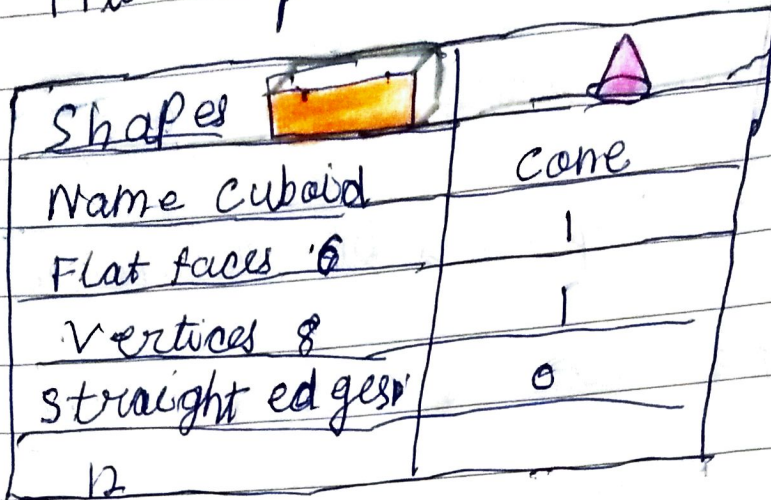 Shapes
Name Cuboid Cone
Flat faces 6 1
Vertices 8 1
Straight edges 0
12